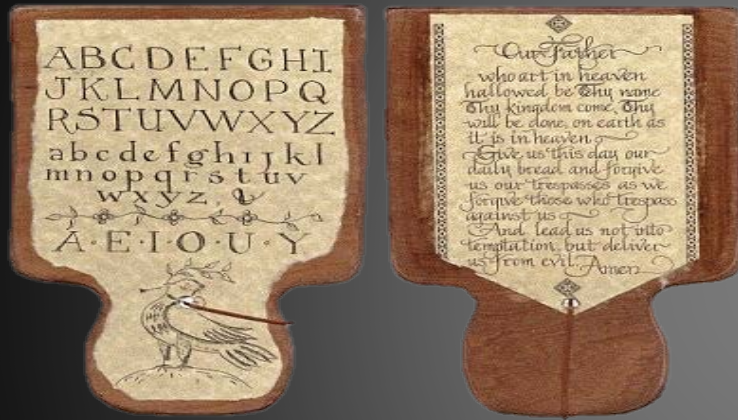 ABCDEFGHI
JKLMNOPQ
RSTUVWXYZ
abcdefghijkl
mnopqrstuv
wxyz, &
A·E·I·O·U·Y
Our Father
who art in heaven
hallowed be Thy name
Thy kingdom come, Thy
will be done, on earth as
it is in heaven
Give us this day our
daily bread and forgive
us our trespasses as we
forgive those who trespass
against us
And lead us not into
temptation, but deliver
us from evil. Amen